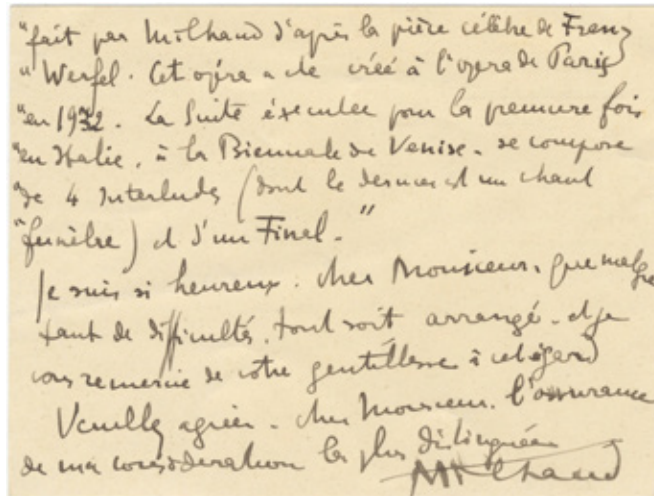 "fait par Milhaud d'après la pièce célèbre de Franz
" Werfel. Cet opéra a été créé à l'opera de Paris
"en 1932. La Suite éxecutée pour la première fois
"en Italie, à la Biennale de Venise. se compose
"de 4 Interludes (dont le dernier est un chant
"funèbre) et d'un Final."
Je suis si heureux. cher Monsieur, que malgré
tant de difficultés, tout soit arrangé. et je
vous remercie de votre gentillesse à cet égard
Veuillez agréer. cher Monsieur. l'assurance
de ma considération la plus distinguée
Milhaud